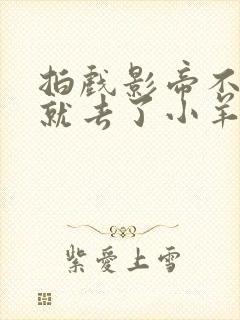 拍戏影帝不
就去了小羊
紫爱上雪